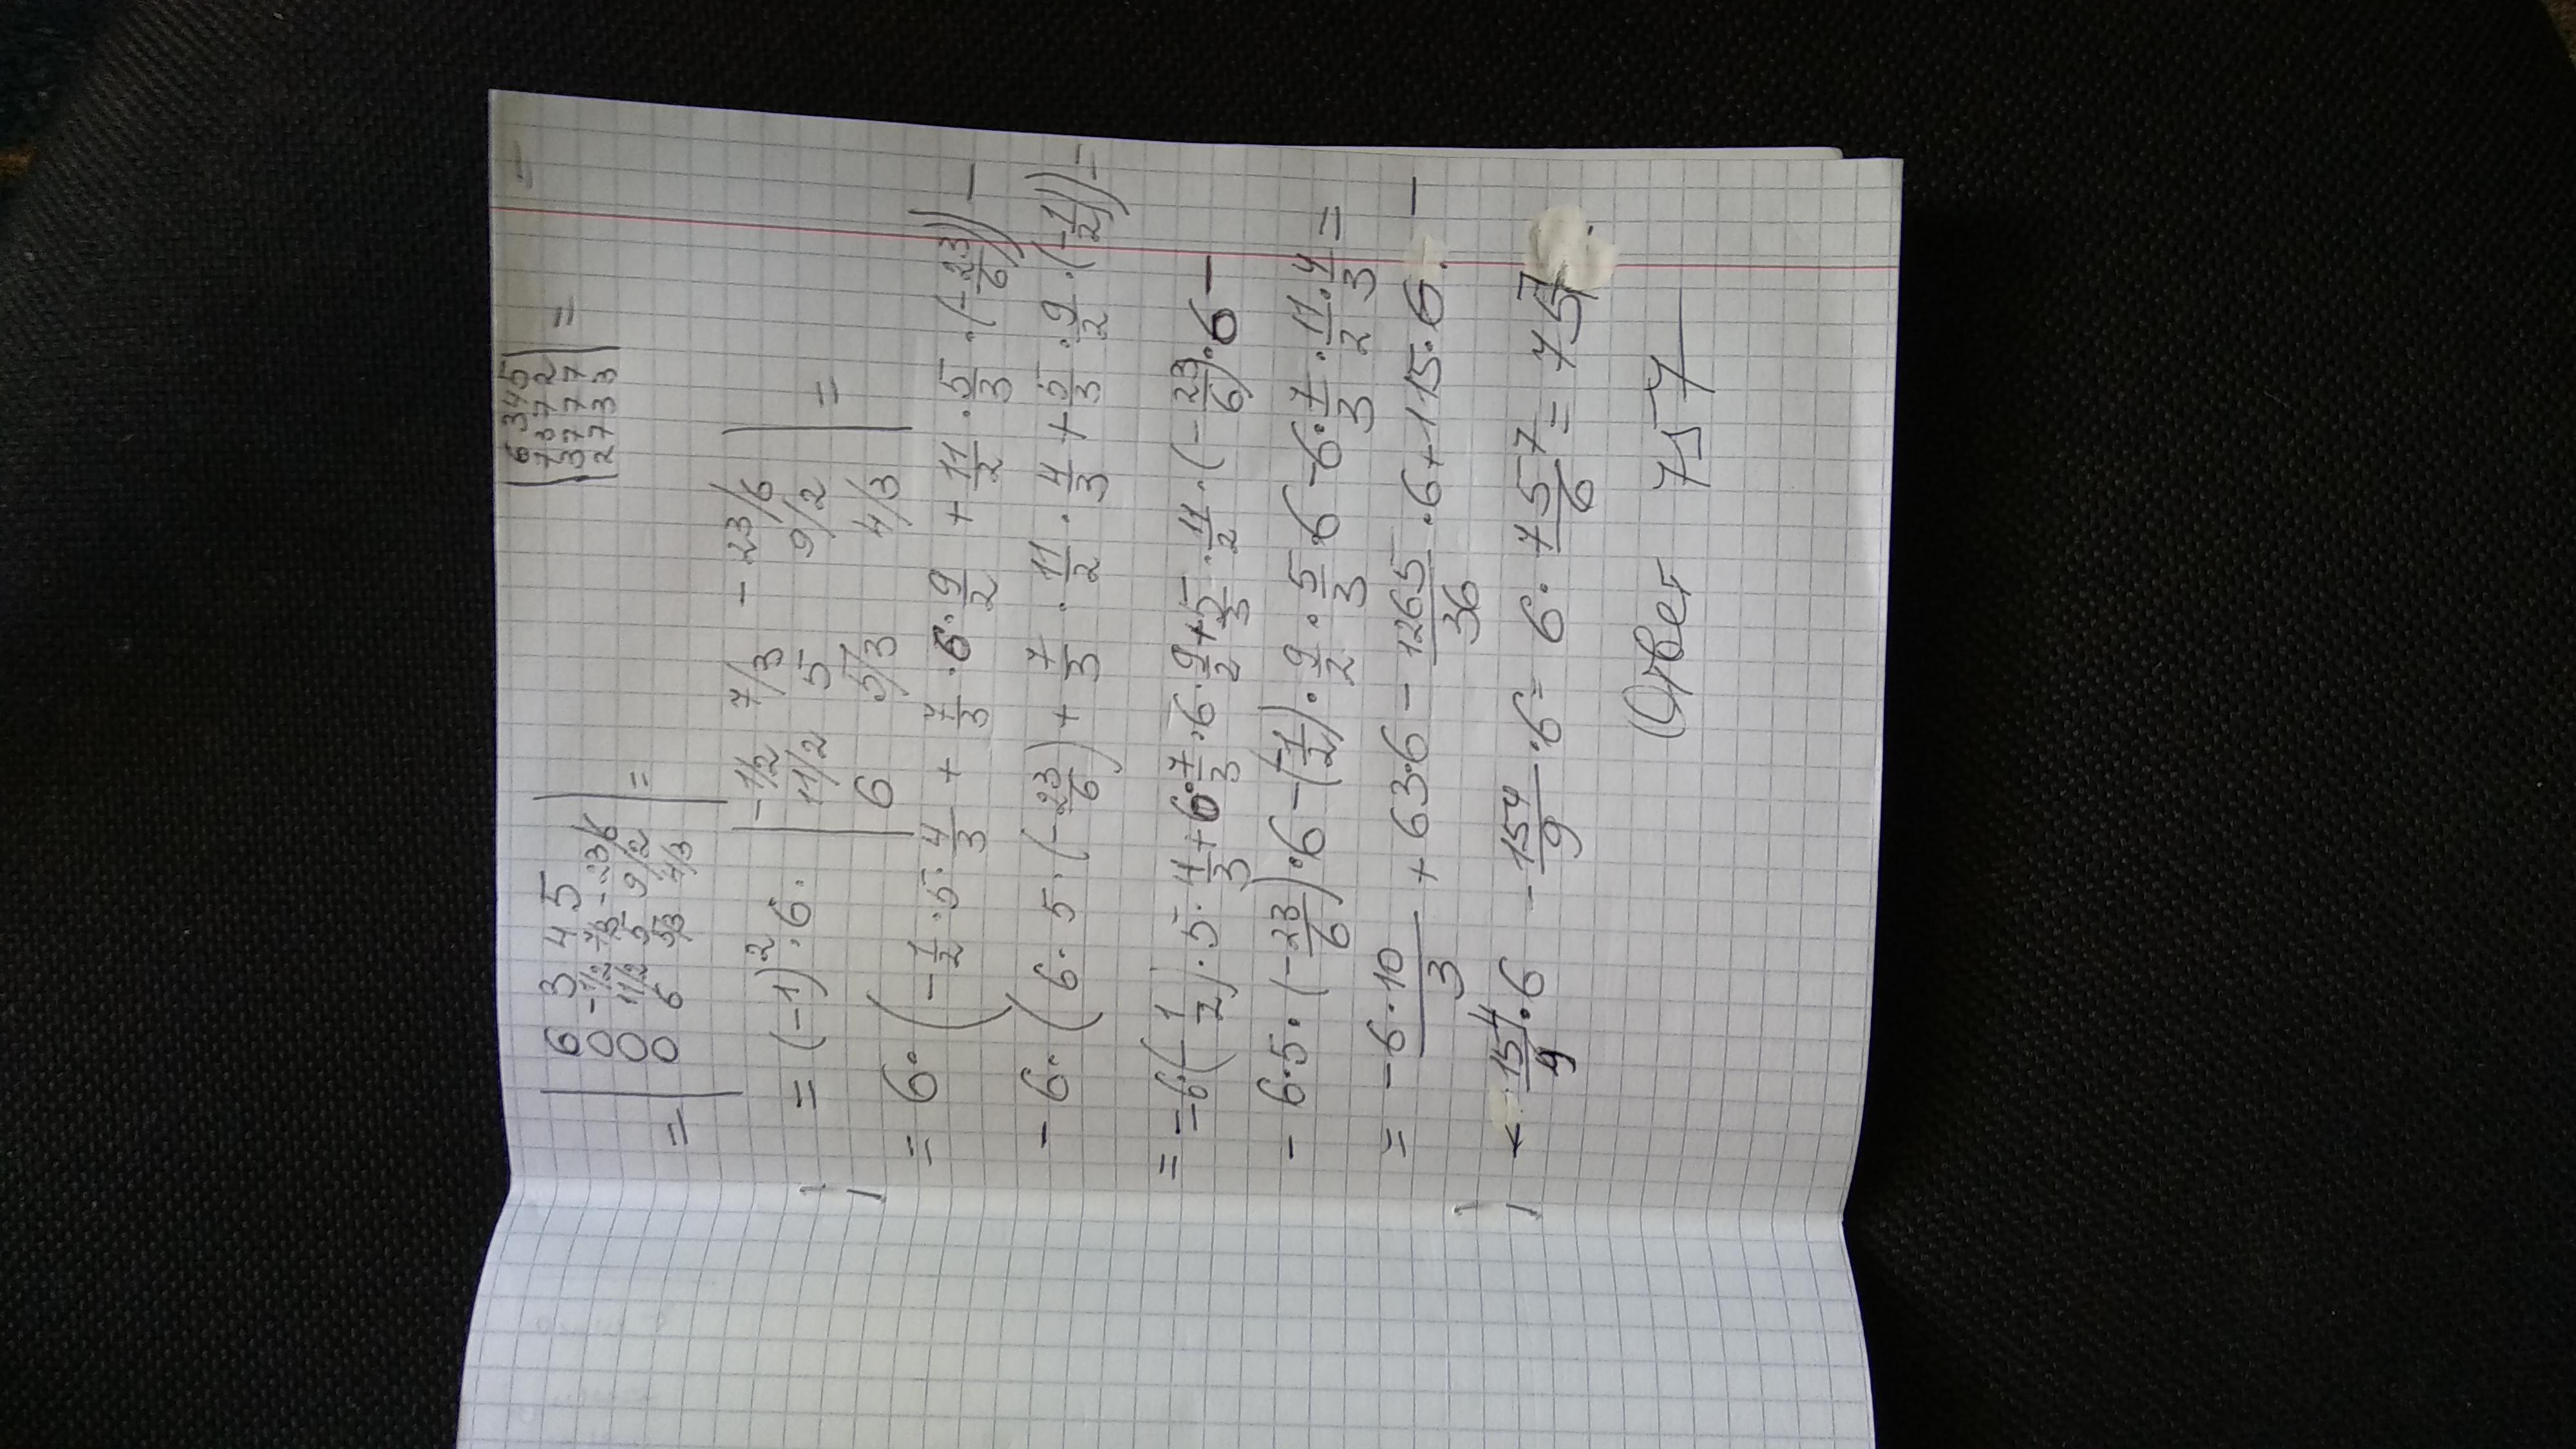 6 3 4 5
7 3 7 2
3 7 7 7 =
2 7 3 3
6 3 4 5
0 -1/2 7/3 -23/6
0 11/2 5 9/2 =
= 0 6 5/3 4/3
-1/2 7/3 -23/6
= (-1)² · 6 · | 11/2 5 9/2 | =
6 5/3 4/3
= 6 · (-1/2 · 5 · 4/3 + 7/3 · 6 · 9/2 + 11/2 · 5/3 · (-23/6)) -
- 6 · (6 · 5 · (-23/6) + 7/3 · 11/2 · 4/3 + 5/3 · 9/2 · (-1/2)) =
= -6 · (1/2) · 5 · 4/3 + 6 · 7/3 · 6 · 9/2 + 5/3 · 11/2 · (-23/6) · 6 -
- 6 · 5 · (-23/6) · 6 - (-1/2) · 9/2 · 5/3 6 - 6 · 7/3 · 11/2 · 4/3 =
= -6 · 10/3 + 63 · 6 - 1265/36 · 6 + 115 · 6 · -
154/9 · 6 - 154/9 · 6 = 6 · 757/6 = 757
Ответ 757